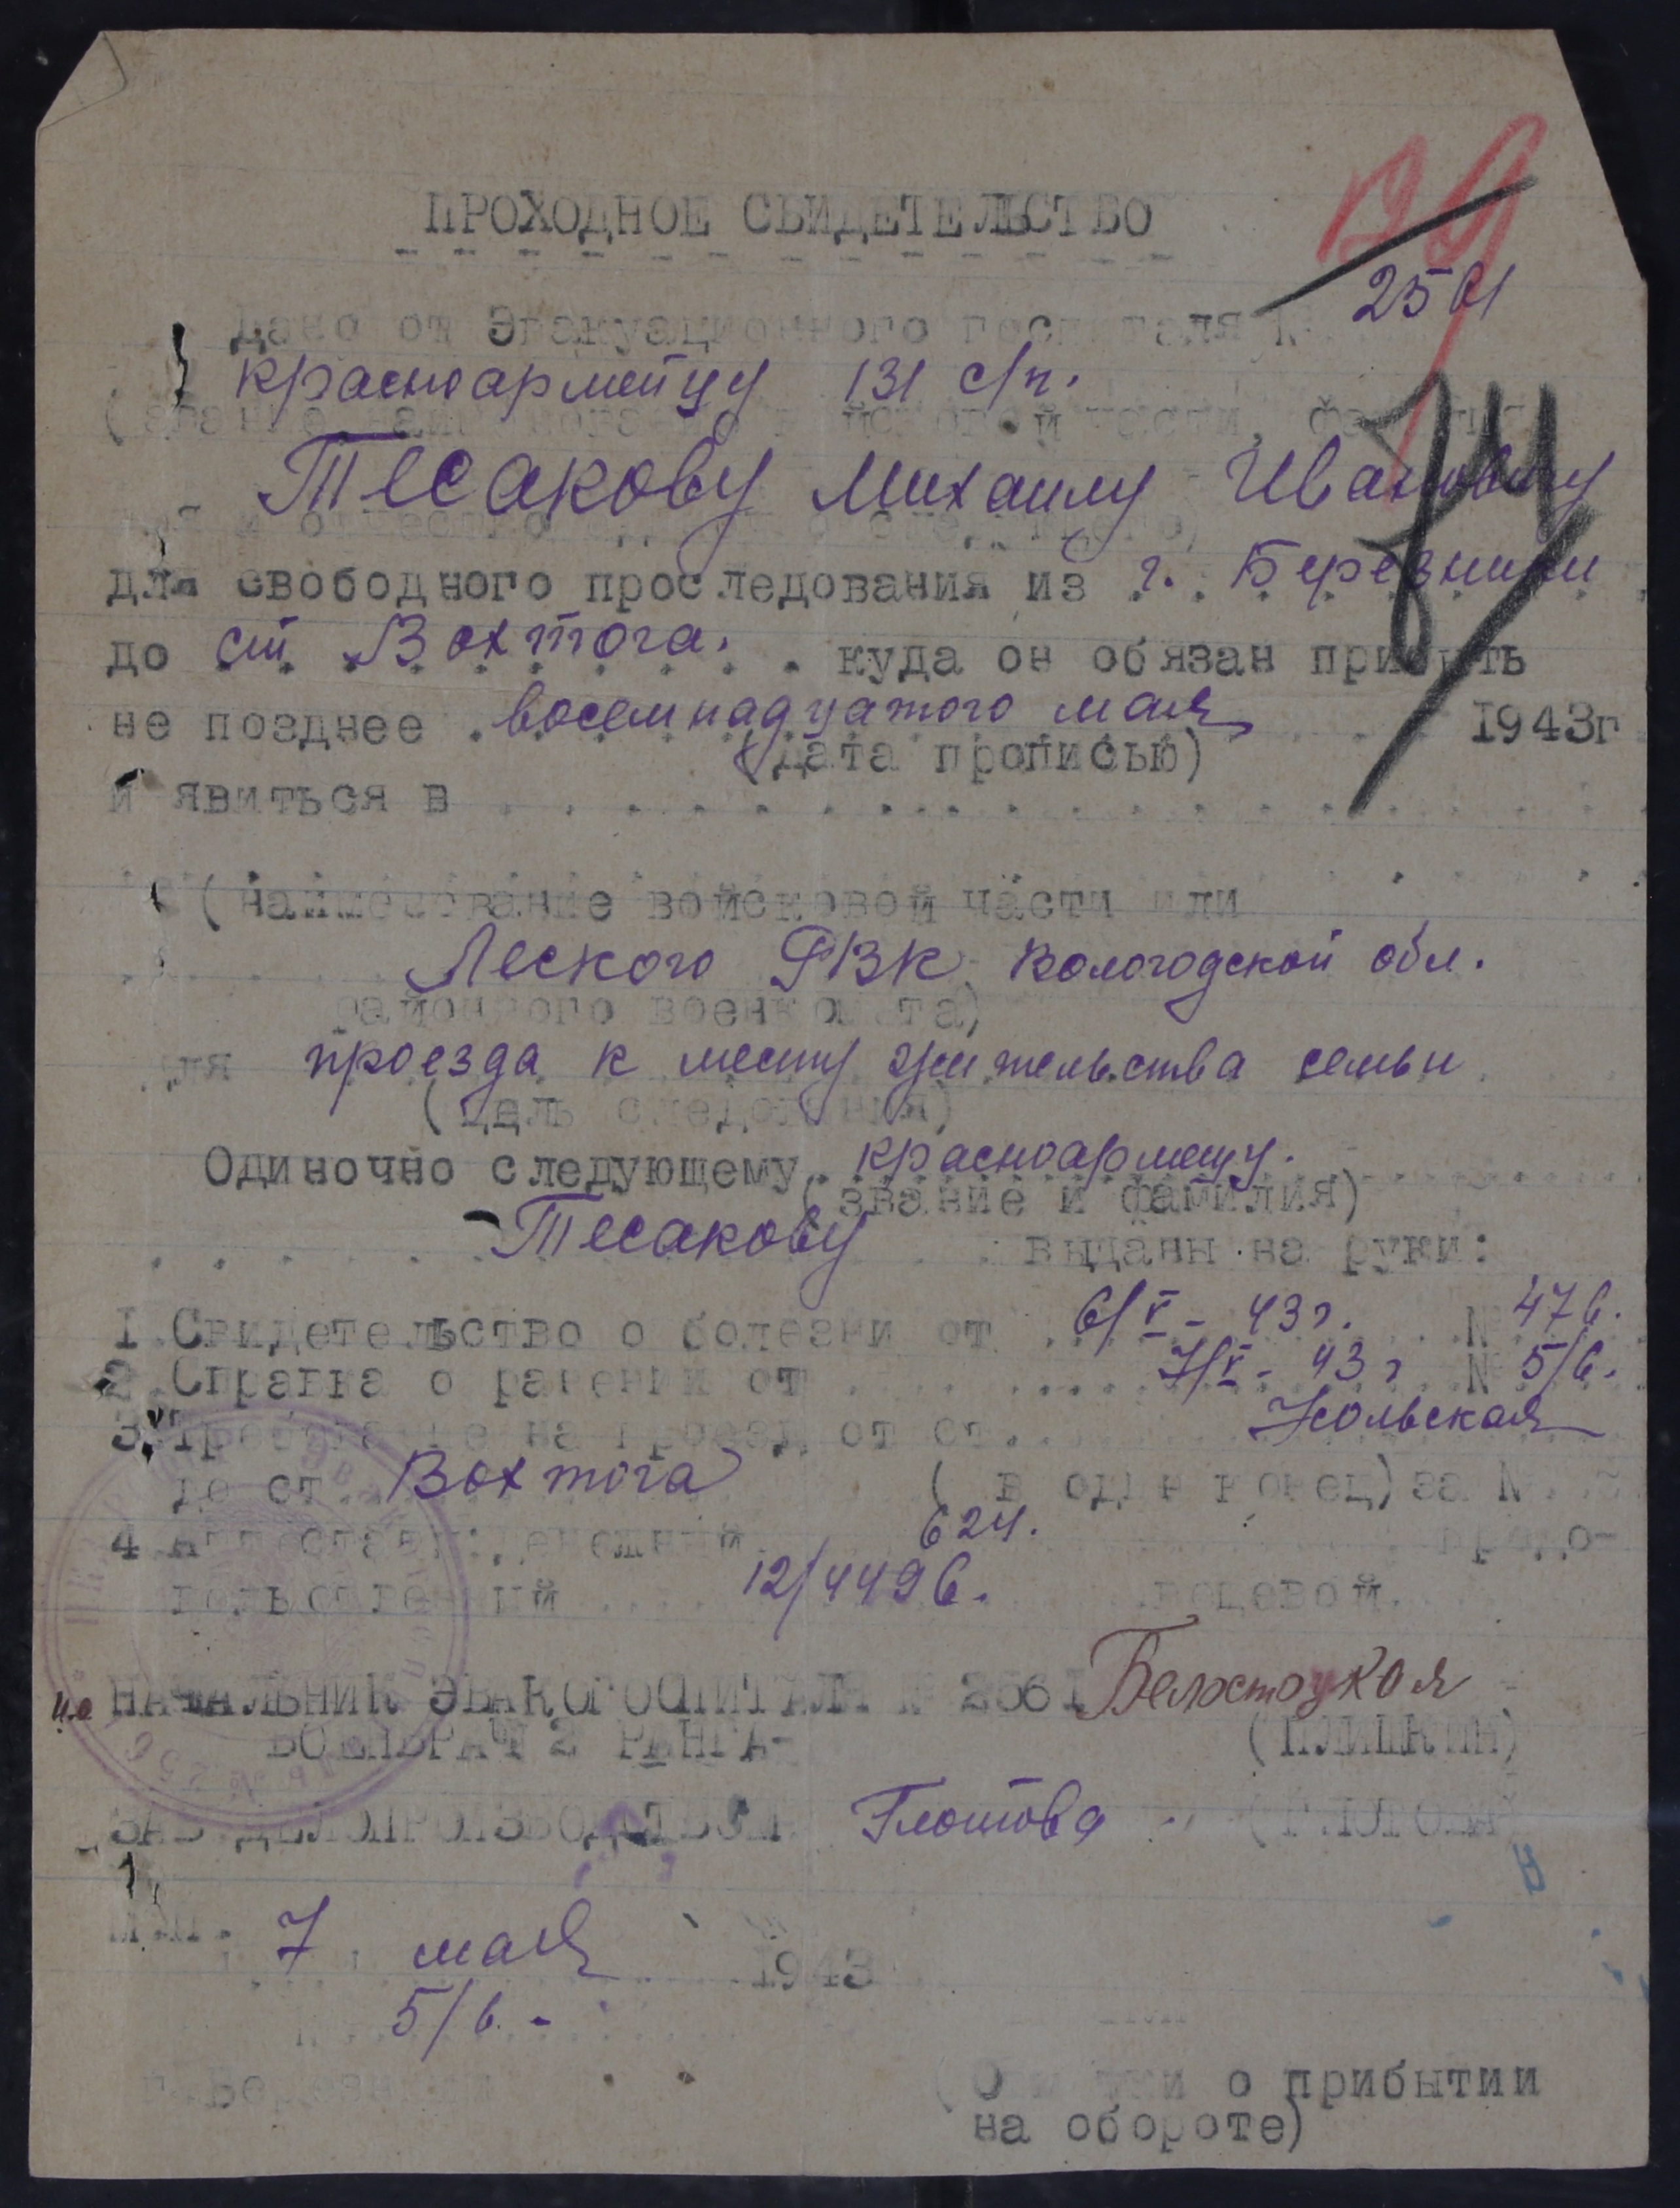 ПРОХОДНОЕ СВИДЕТЕЛЬСТВО
2561
Дано от Эвакуационного госпиталя №
красноармейцу 131 с/п.
Тесакову Михаилу Ивановичу
для свободного проследования из г. Березники
до ст Вохтога. куда он обязан прибыть
не позднее восемнадцатого мая 1943г
(дата прописью)
и явиться в
(наименование войсковой части или
Леского РВК Вологодской обл.
районного военкомата)
для проезда к месту жительства семьи
(цель следования)
Одиночно следующему красноармейцу.
(звание и фамилия)
Тесакову выданы на руки:
1 Свидетельство о болезни от 6/V - 43г. № 476.
2 Справка о ранении от 7/V - 43г № 5/6.
3 Требование на проезд от ст. Усольская
до ст. Вохтога (в один конец) за №
4 Аттестаты: денежный 624. продо-
вольственный 12/4496. вещевой.
НАЧАЛЬНИК ЭВАКОГОСПИТАЛЯ № 2561 Белостоцкая
ВОЕНВРАЧ 2 РАНГА- (ПЛИШКИН)
ЗАВ ДЕЛОПРОИЗВОДСТВОМ Глотова
7 мая 1943
5/6.-
г. Березники
(Отметки о прибытии
на обороте)